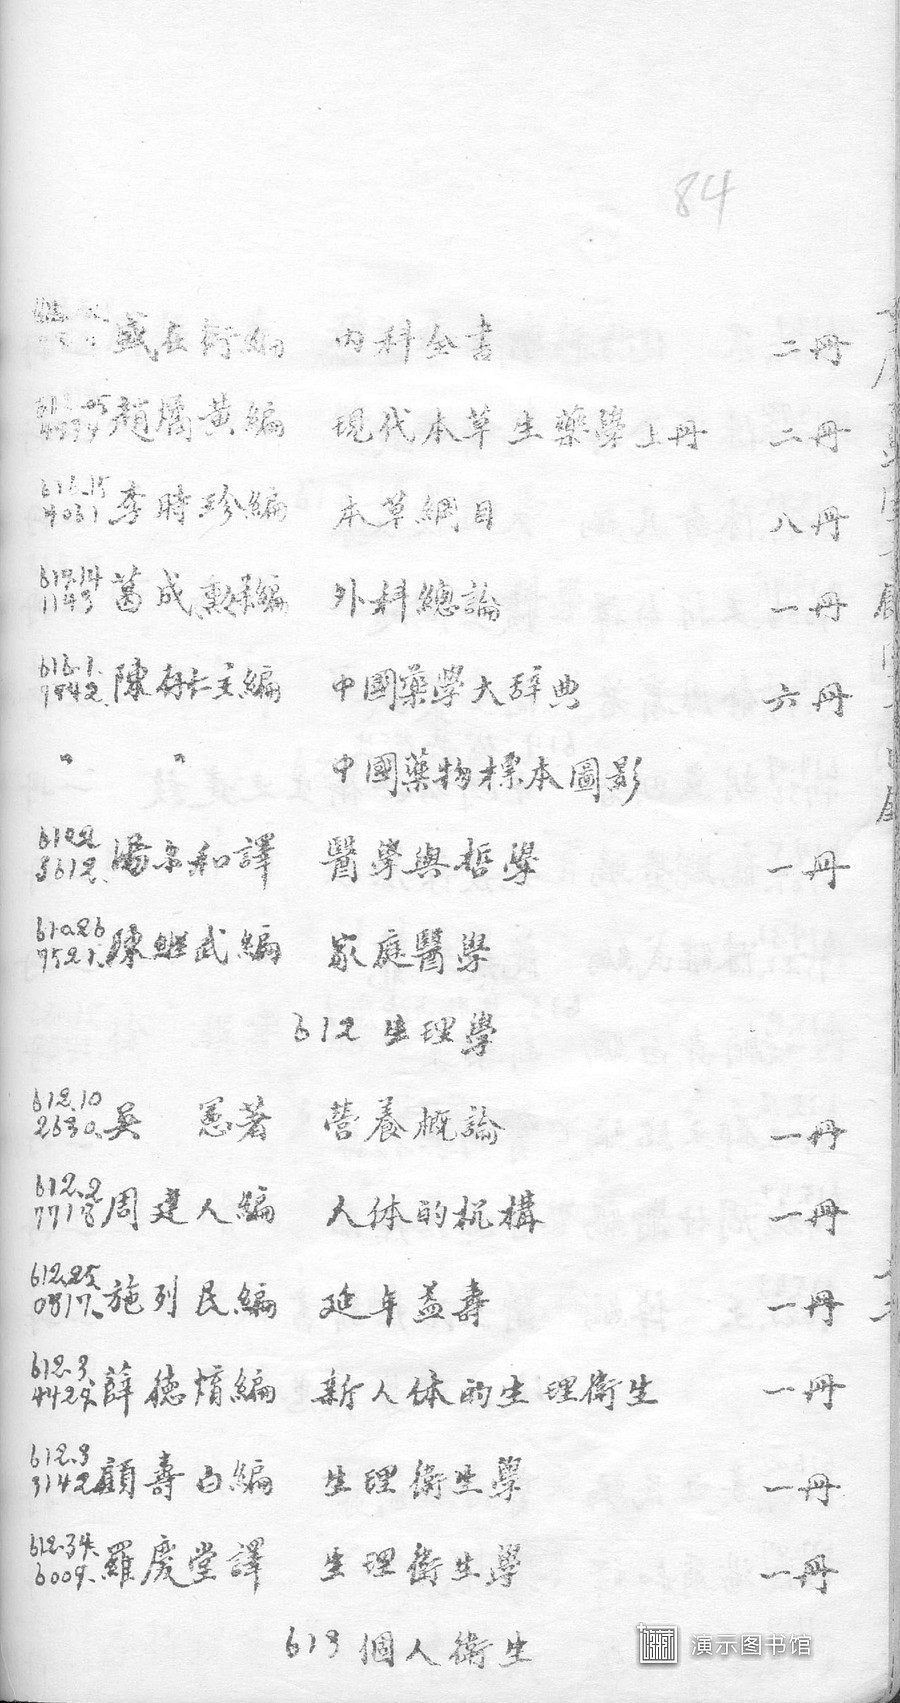 84
盛在珩編 内科全書 二冊
趙燏黄編 現代本草生藥學上冊 二冊
李時珍編 本草綱目 八冊
617.14
1143 葛成勳編 外科總論 一冊
616.1.
7842. 陳存仁主編 中國藥学大辞典 六冊
〃 〃 中國藥物標本圖影
610.2
3612. 湯尔和譯 醫學與哲學 一冊
610.26
7521. 陳繼武編 家庭醫學
612 生理學
612.10
2630. 吳 憲著 營養概論 一冊
612.2
7718 周建人編 人体的机構 一冊
612.25
0817. 施列民編 延年益壽 一冊
612.3.
4429. 薛德焴編 新人体的生理衛生 一冊
612.3
3142 顧壽白編 生理衛生學 一冊
612.34.
6009. 羅慶堂譯 生理衛生學 一冊
613 個人衛生
演示图书馆